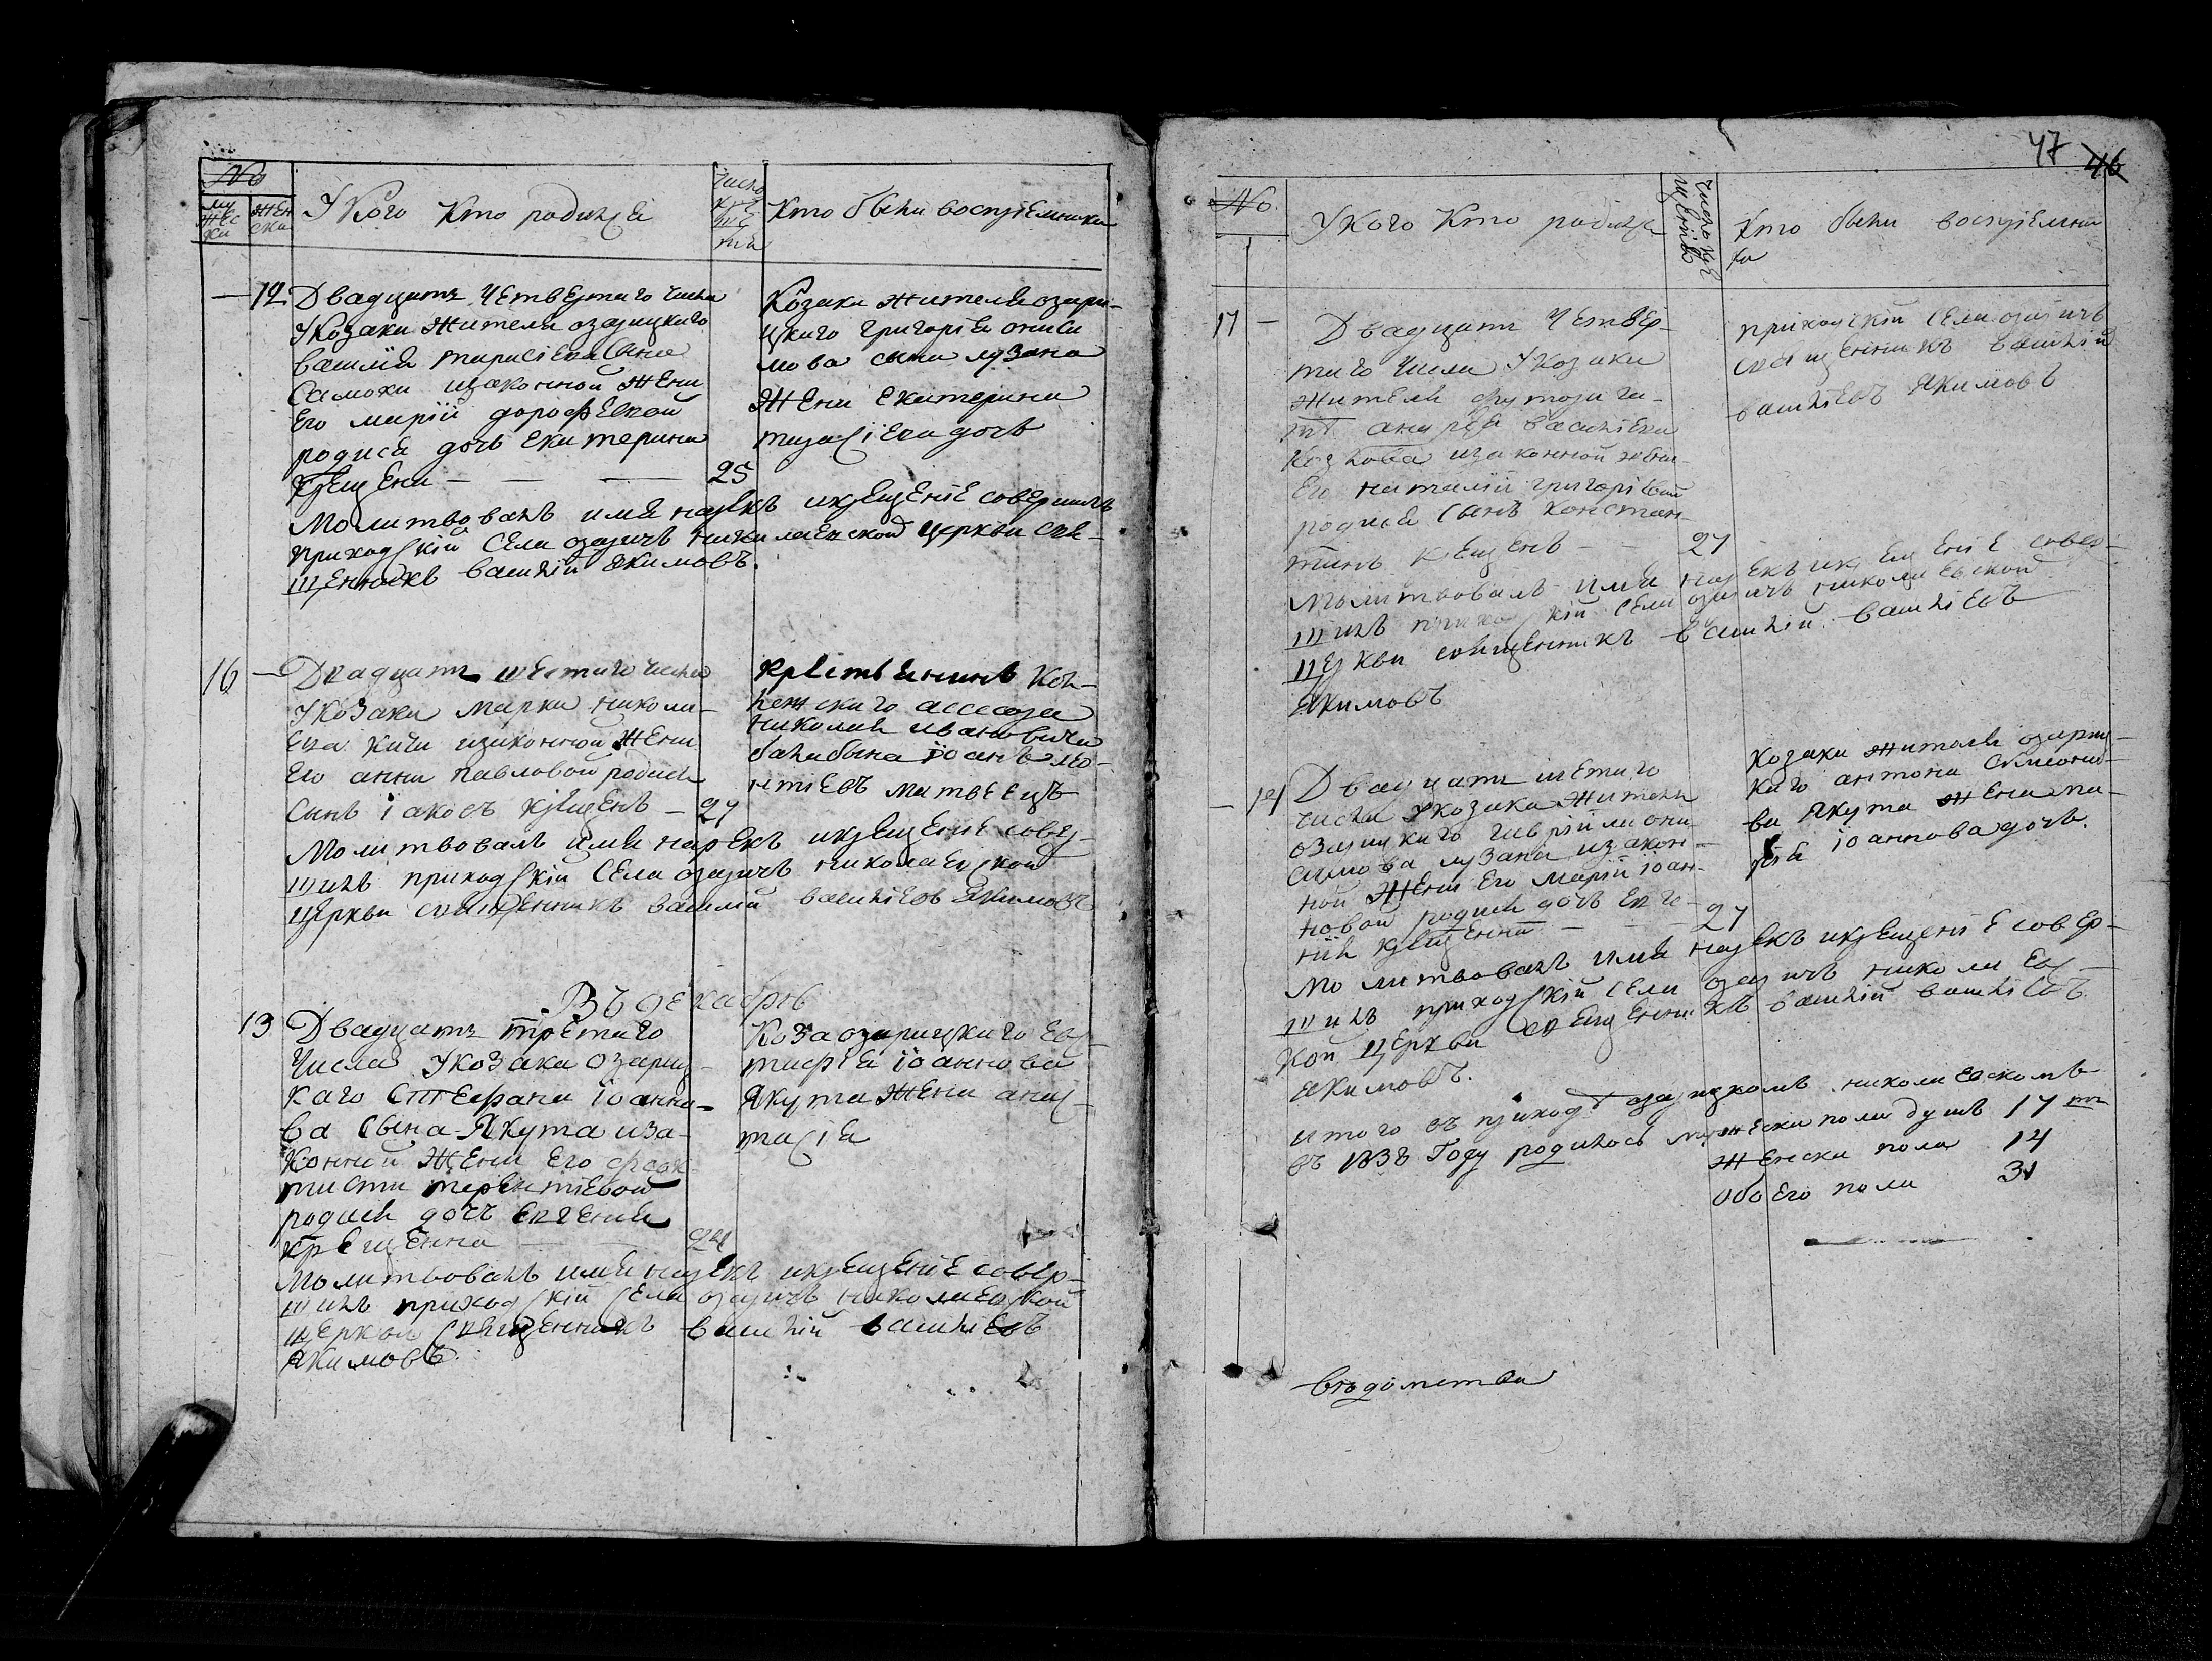 №
мужески женска
У Кого Кто родился
Число крещенія
Кто были воспріемники
— 12 Двадцать Четвертаго числа
У Козака Жителя озарицкаго
василія тарасіева сына
Самохи изаконной Жены
Его маріи дорофеевой
родися дочь Екатерина
Крещена — — — 25
Козака жителя озари-
цкаго Григорія аниси
мова сына лузана
Жена Екатерина
тарасіева дочь
Молитвовалъ имя нарекъ икрещеніе совершилъ
приходскій Села озаричъ николаевской церкви свя-
щенникъ василій Якимовъ.
16 — Двадцать шестаго числа
У Козака марка никола-
ева изаконной Жены
Его анны павловой родися
Сынъ іаковъ крещенъ — 27
крестьянинъ Кол-
лежскаго асессора
николая ивановича
іоанъ лео-
нтіевъ матвеецъ
Молитвовалъ имя нарекъ икрещеніе совер-
шилъ приходскій Села озаричъ николаевской
церкви священникъ василій васильевъ Якимовъ
Въ декабрѣ
13 Двадцать третьяго
Числа У Козака озариц-
каго Стефана іоанно-
ва Сына Якута иза-
конной Жены Его феок-
тисты терентіевой
родися дочь Евгенія
крещенна — 24
Коза озарицкаго Ев-
стафія іоаннова
Якута Жена анас-
тасія
Молитвовалъ имя нарекъ икрещеніе совер-
шилъ приходскій Села озаричъ николаевской
церкви священникъ василій васильевъ
Якимовъ.
47 46
№
У Кого Кто родился
Число крещенію
Кто были воспріемни
ки
17 — Двадцать Четвер-
таго числа У Козака
жителя
андрея васильева
Козлова изаконной жены
Его наталіи григоріевой
родися Сынъ констан-
тинъ крещенъ — — 27
приходскій Села озаричъ
священникъ василій
васильевъ Якимовъ
Молитвовалъ имя нарекъ икрещеніе совер-
шилъ приходскій Села озаричъ николаевской
церкви священникъ василій васильевъ
Якимовъ
— 14 Двадцать шестаго
числа У козака жителя
озарицкаго гавріила они-
симова лузана изакон-
ной Жены Его маріи іоан-
новой родися дочь Евге-
нія крещенна — — 27
Козака жителя озариц-
каго антона Симоно-
ва Якута Жена ма-
рія іоаннова дочь.
Молитвовалъ имя нарекъ икрещеніе совер-
шилъ приходскій Села озаричъ николаевс-
кой церкви священникъ василій васильевъ
Якимовъ.
итого въ приходѣ озарицкомъ николаевскомъ
въ 1838 Году родилось мужеска пола душъ 17
Женска пола 14
обоего пола 31
вѣдомства